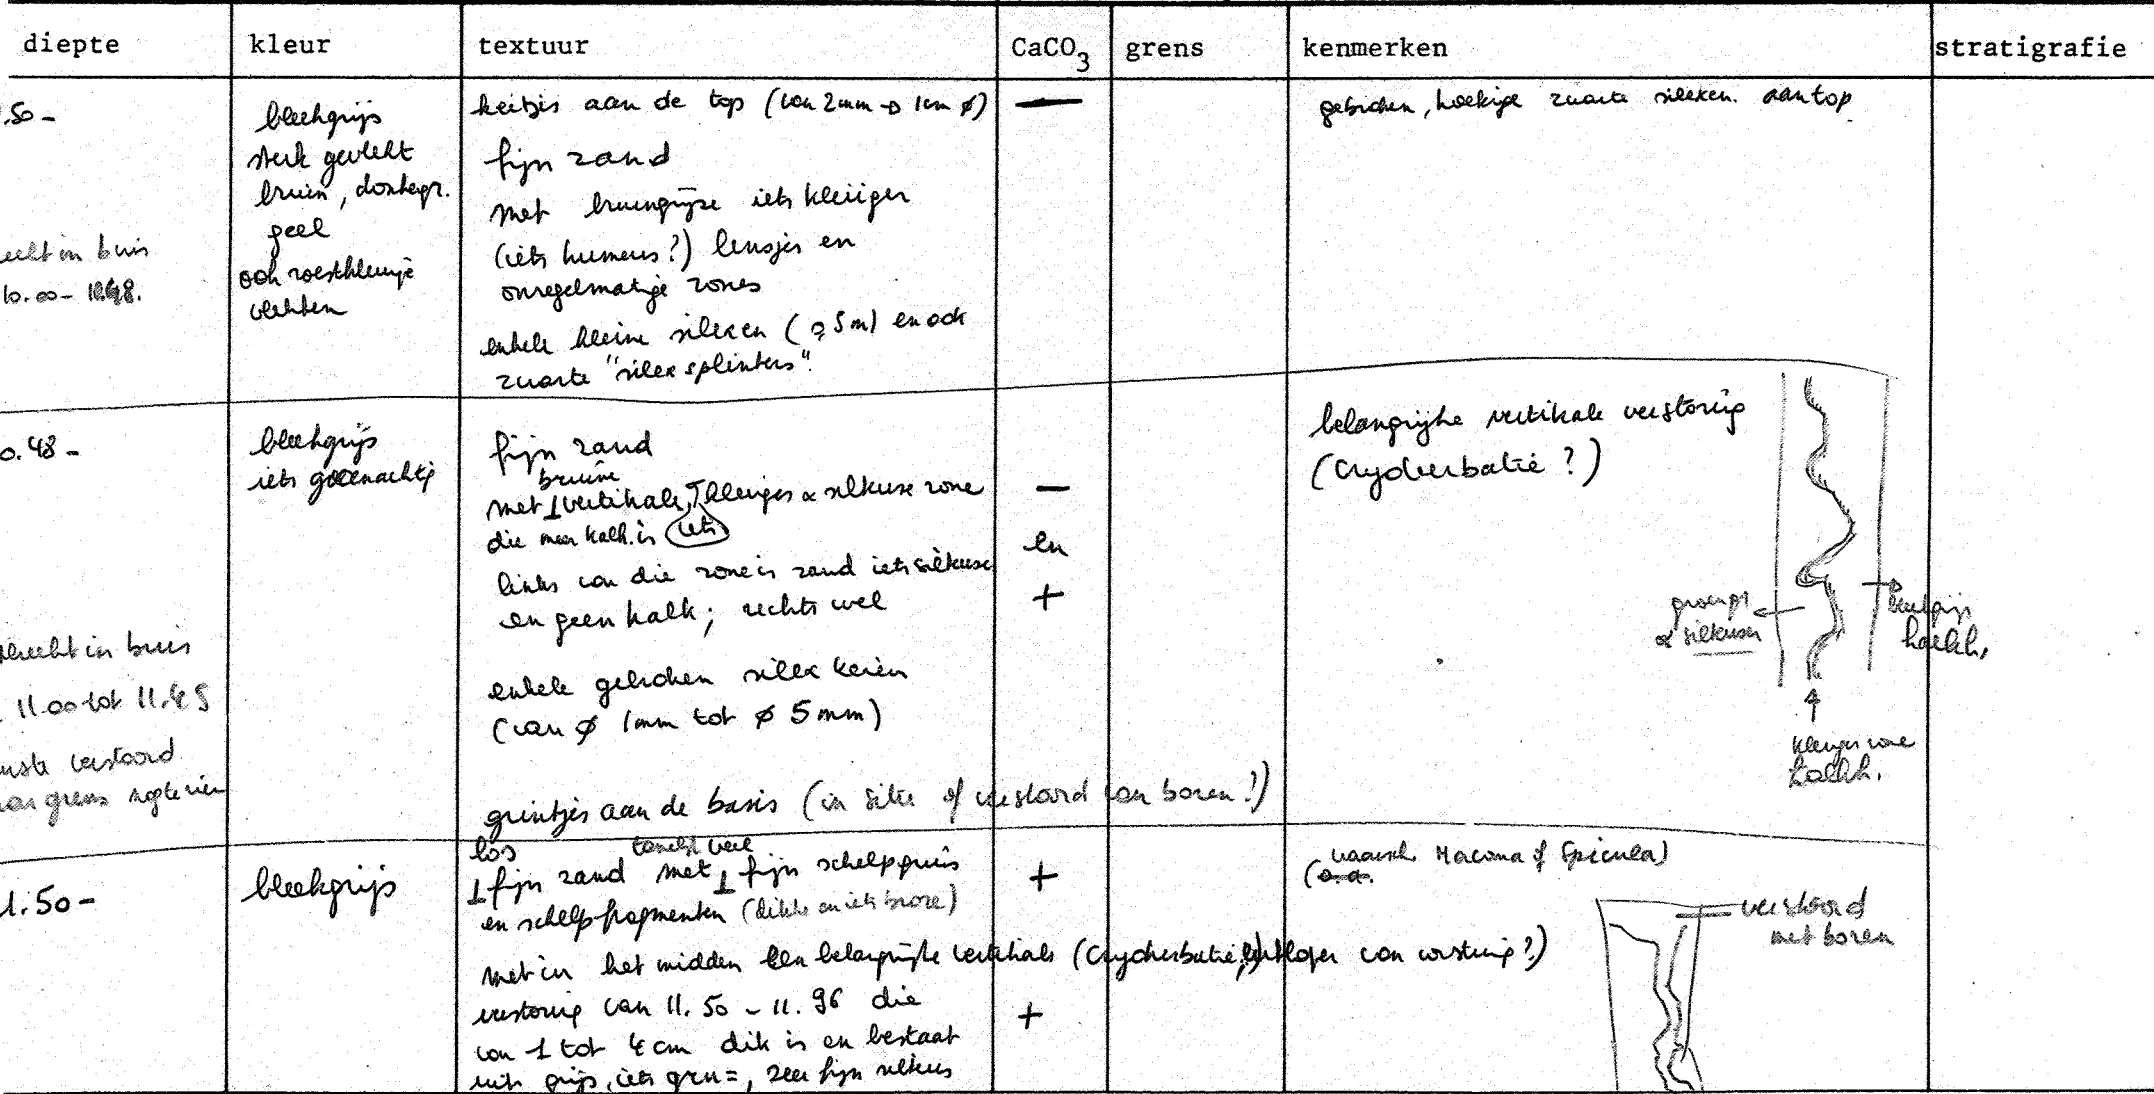 diepte kleur textuur CaCO3 grens kenmerken stratigrafie
.50 -
bleekgrijs
sterk gevlekt
bruin, donkergr.
geel
ook roestkleurige
vlekken
in buis
10.00 -
keitjes aan de top (van 2mm → 1cm ∅)
fijn zand
met bruingrijze iets kleiiger
(iets humeus?) lensjes en
onregelmatige zones
enkele kleine silexen ( 5m) en ook
zwarte "silex splinters".
—
gebroken, hoekige zwarte silexen. aan top
0.48 -
bleekgrijs
iets groenachtig
in buis
11.00 tot 11.45
verstoord
grens
fijn zand
bruine
met ⊥ vertikale, kleiiges silteuse zone
die meer kalk. is iets
links van die zone is zand iets silteuse
en geen kalk; rechts wel
enkele gebroken silex keien
(van ∅ 1mm tot ∅ 5mm)
grintjes aan de basis (in situ of verstoord van boren?)
—
en
+
belangrijke vertikale verstoring
(Cryoturbatie?)
silteuser
bleekgrijs
kalkh.
kleiiger zone
kalkh.
1.50 -
bleekgrijs
los tamelijk veel
⊥ fijn zand met ⊥ fijn schelpgruis
en schelpfragmenten (dikke en iets broze)
met in het midden een belangrijke vertikale (Cryoturbatie, van worteling?)
verstoring van 11.50 - 11.96 die
van 1 tot 4 cm dik is en bestaat
uit grijs, iets groen=, zeer fijn silteus
+
+
(waarsch. Macoma of Spicula)
verstoord
met boren